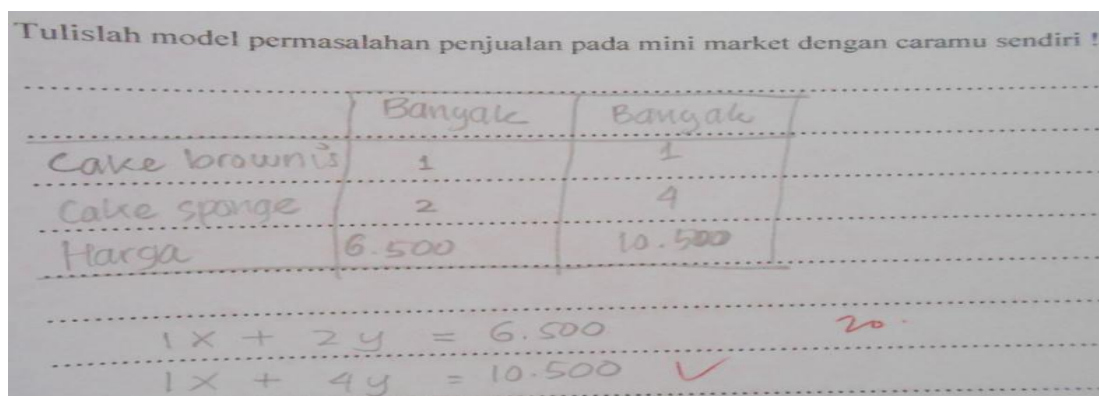 Tulislah model permasalahan penjualan pada mini market dengan caramu sendiri !
Banyak Banyak
Cake brownis 1 1
Cake sponge 2 4
Harga 6.500 10.500
1x + 2y = 6.500
20.
1x + 4y = 10.500 ✓